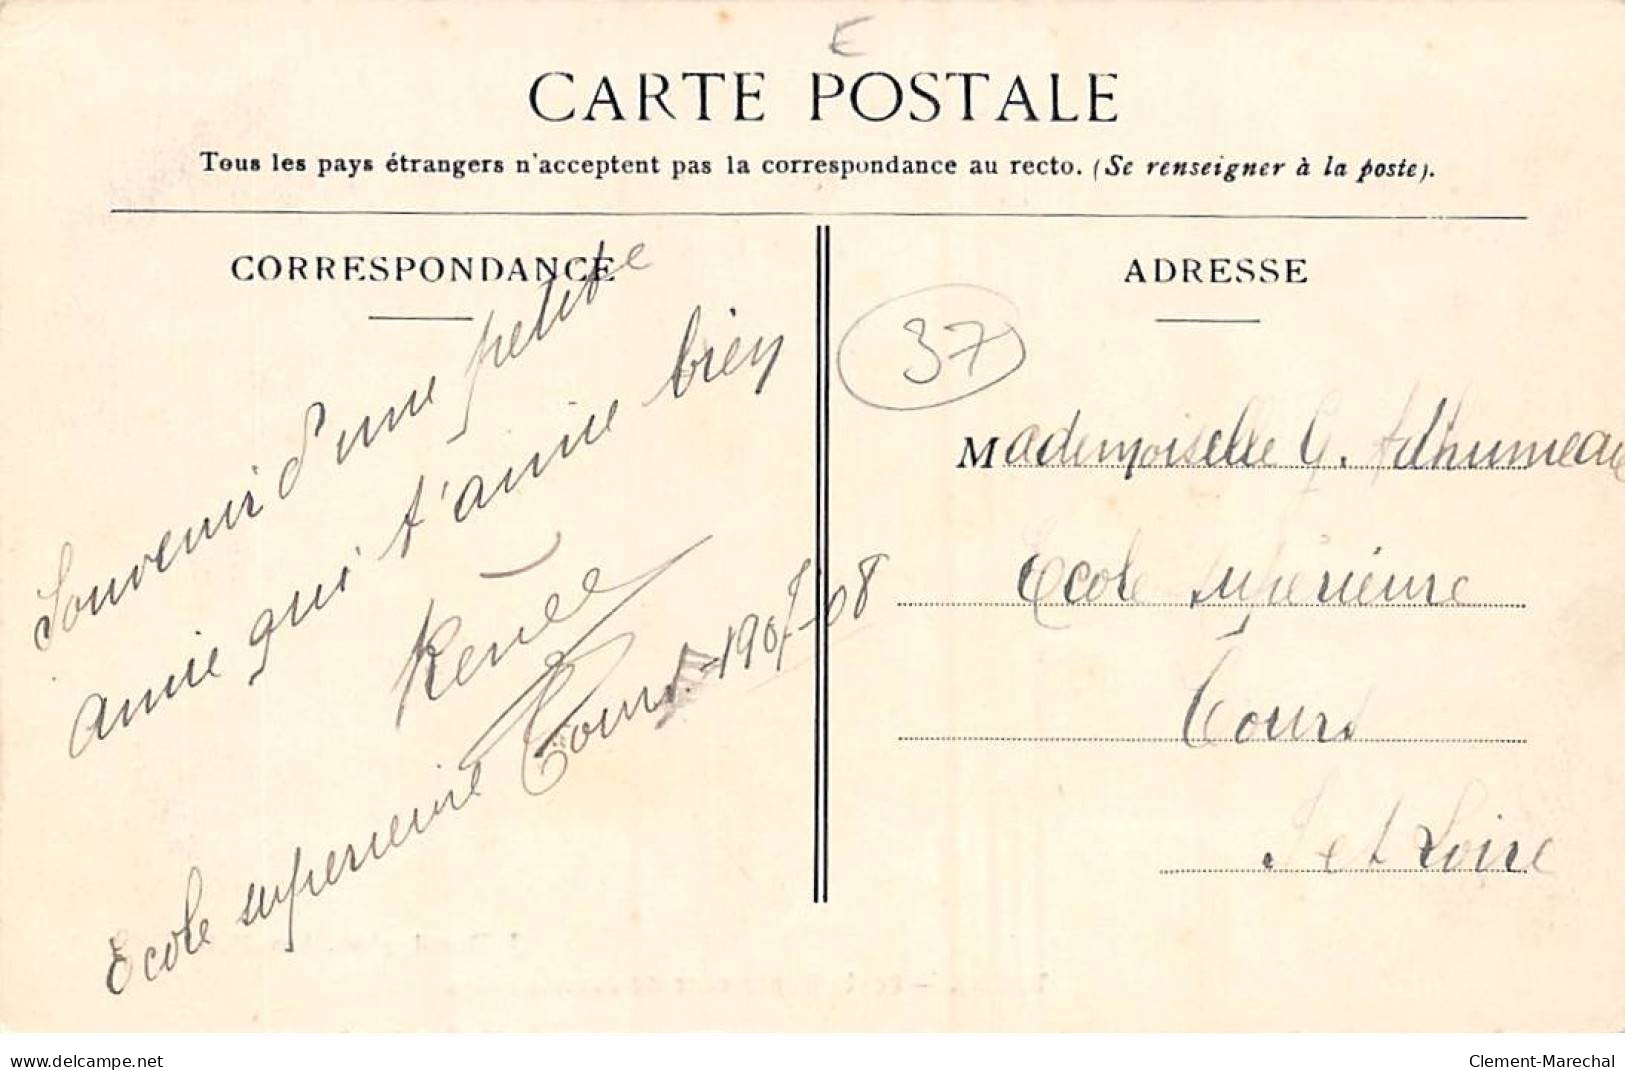 E
CARTE POSTALE
Tous les pays étrangers n'acceptent pas la correspondance au recto. (Se renseigner à la poste).
CORRESPONDANCE
Souvenir d'une petite
amie qui t'aime bien
Renée
Ecole superieure Tours - 1907-08
ADRESSE
37
Mademoiselle G. Adhumeau
Ecole supérieure
Tours
I et Loire
www.delcampe.net
Clement-Marechal